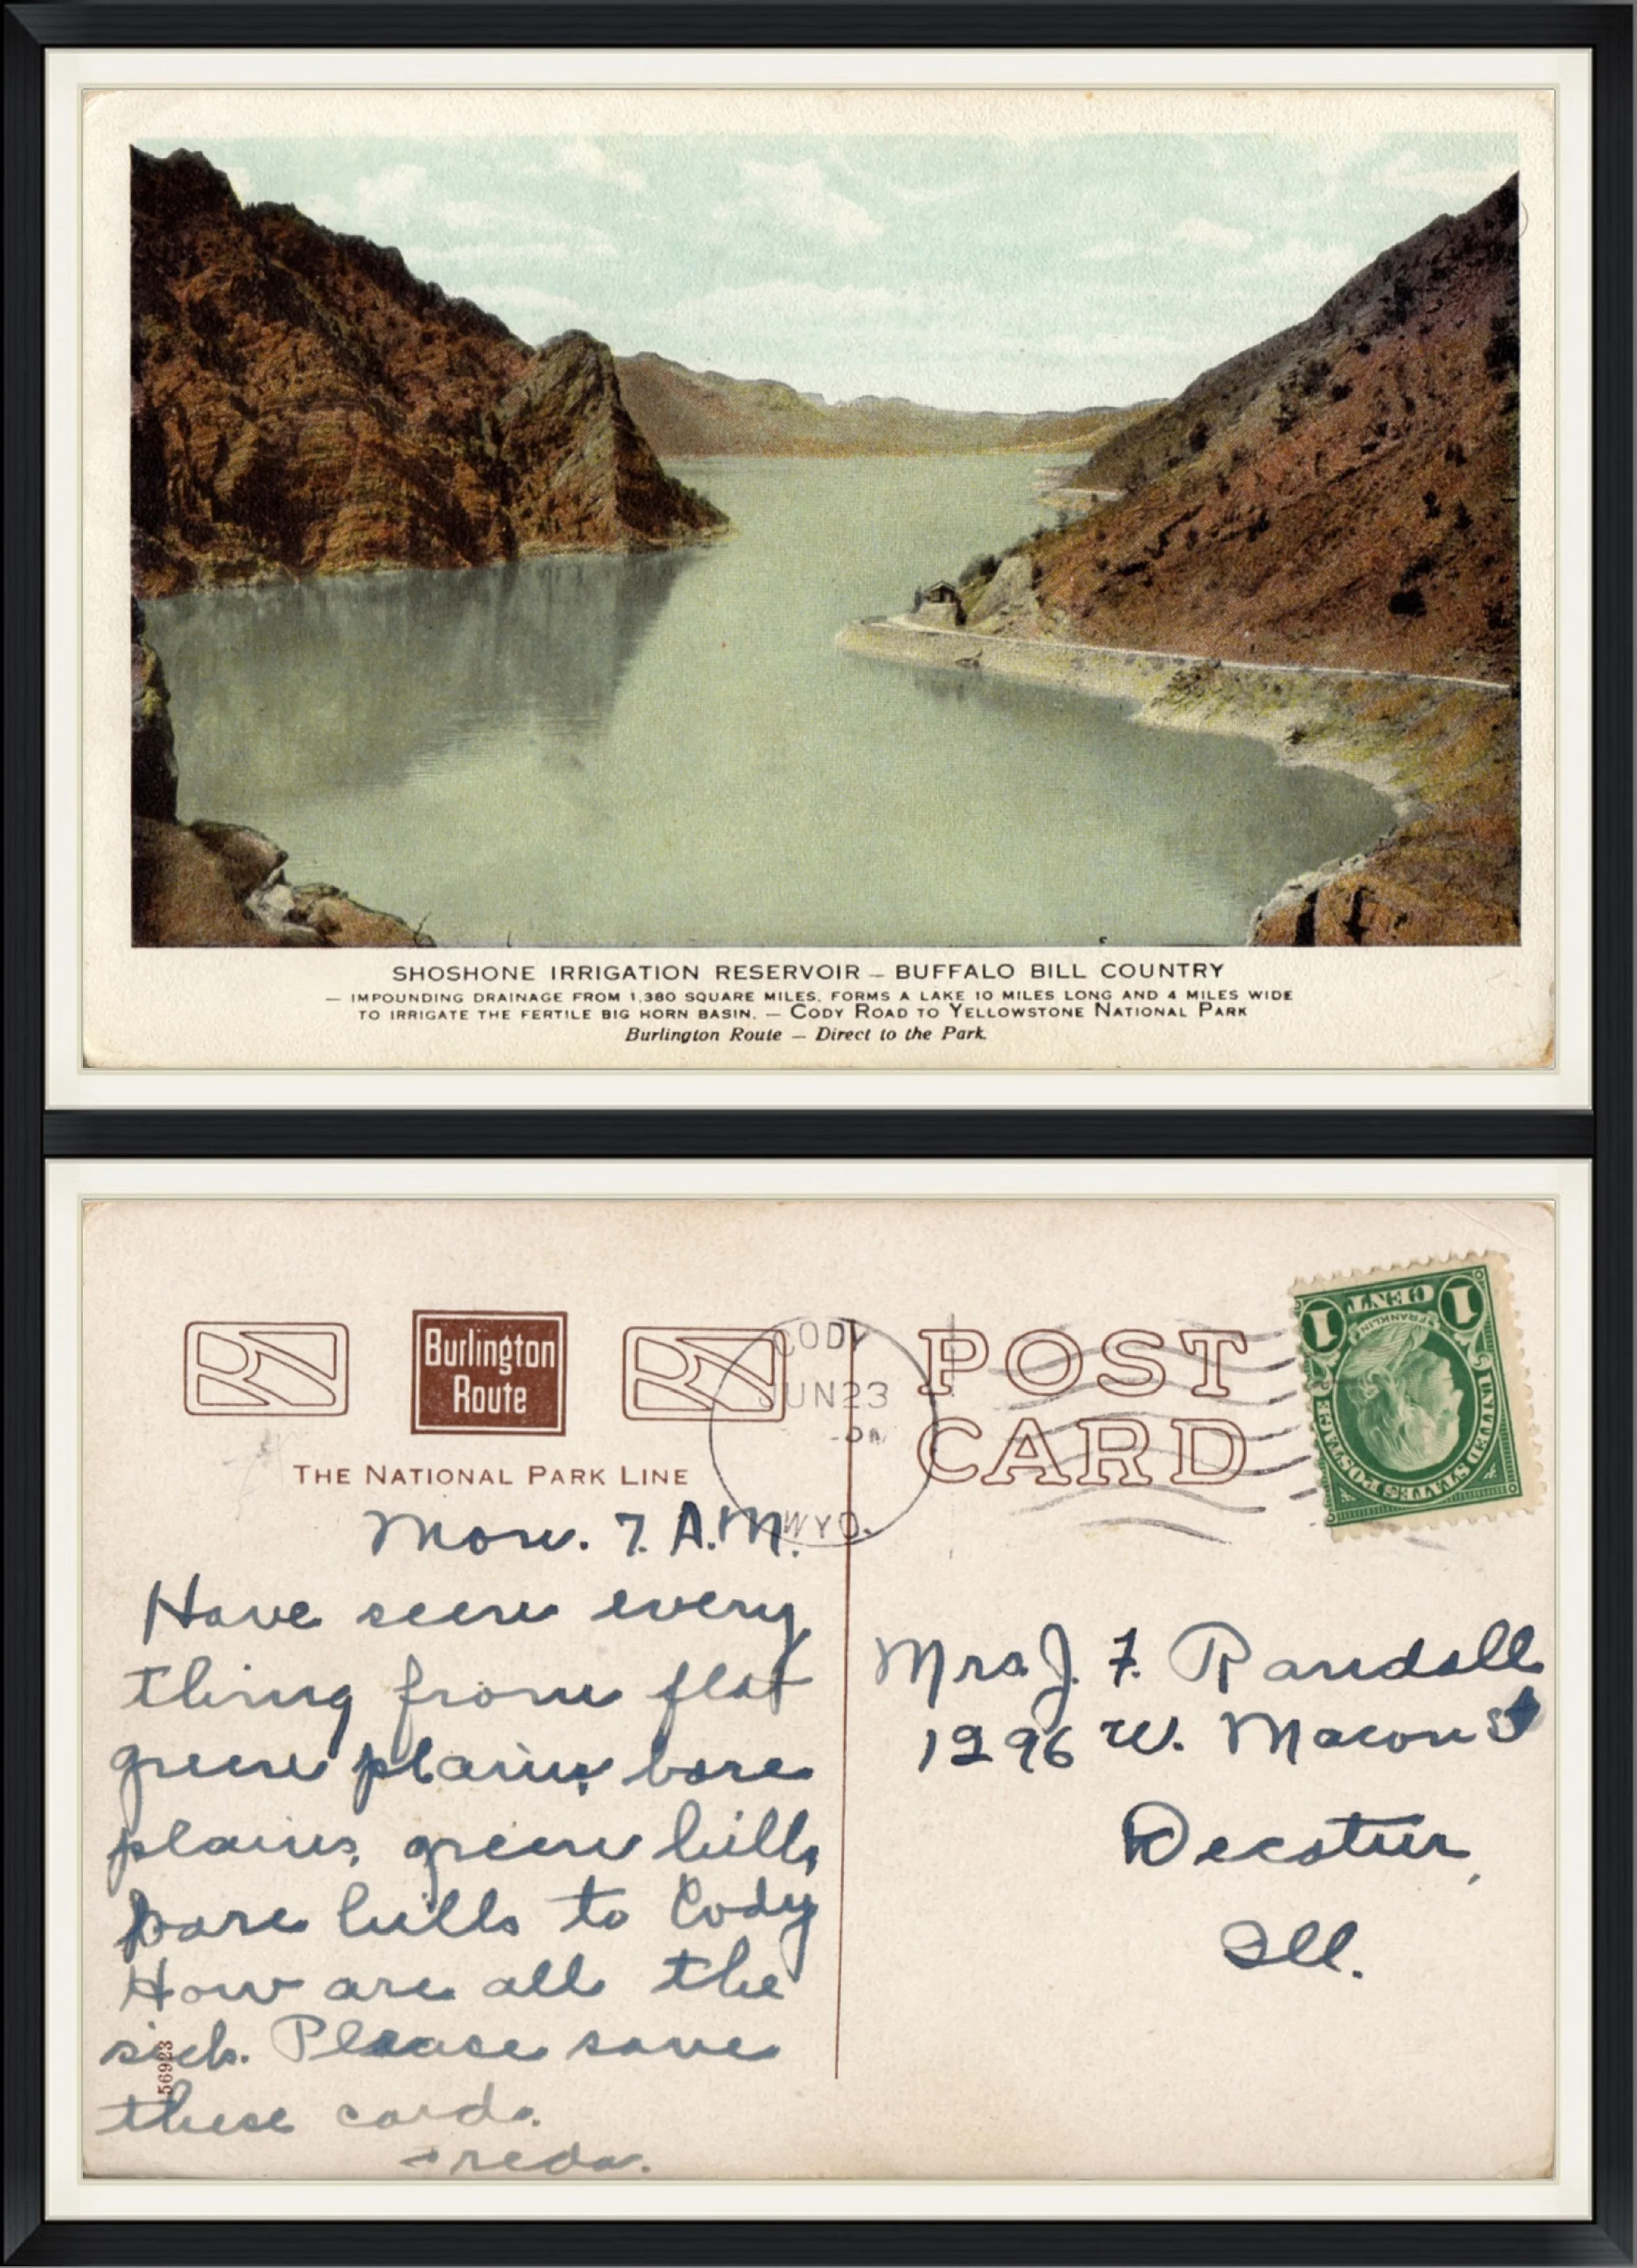 SHOSHONE IRRIGATION RESERVOIR – BUFFALO BILL COUNTRY
– IMPOUNDING DRAINAGE FROM 1,380 SQUARE MILES, FORMS A LAKE 10 MILES LONG AND 4 MILES WIDE
TO IRRIGATE THE FERTILE BIG HORN BASIN. – CODY ROAD TO YELLOWSTONE NATIONAL PARK
Burlington Route – Direct to the Park.
Burlington
Route
THE NATIONAL PARK LINE
CODY
JUN 23
WYO.
POST
CARD
1 CENT 1
FRANKLIN
UNITED STATES POSTAGE
Mon. 7. A.M.
Have seen every
thing from flat
green plains, bare
plains, green hills,
bare hills to Cody
How are all the
sick. Please save
these cards.
Freda.
56923
Mrs J. F. Randall
1296 W. Macon St
Decatur,
Ill.